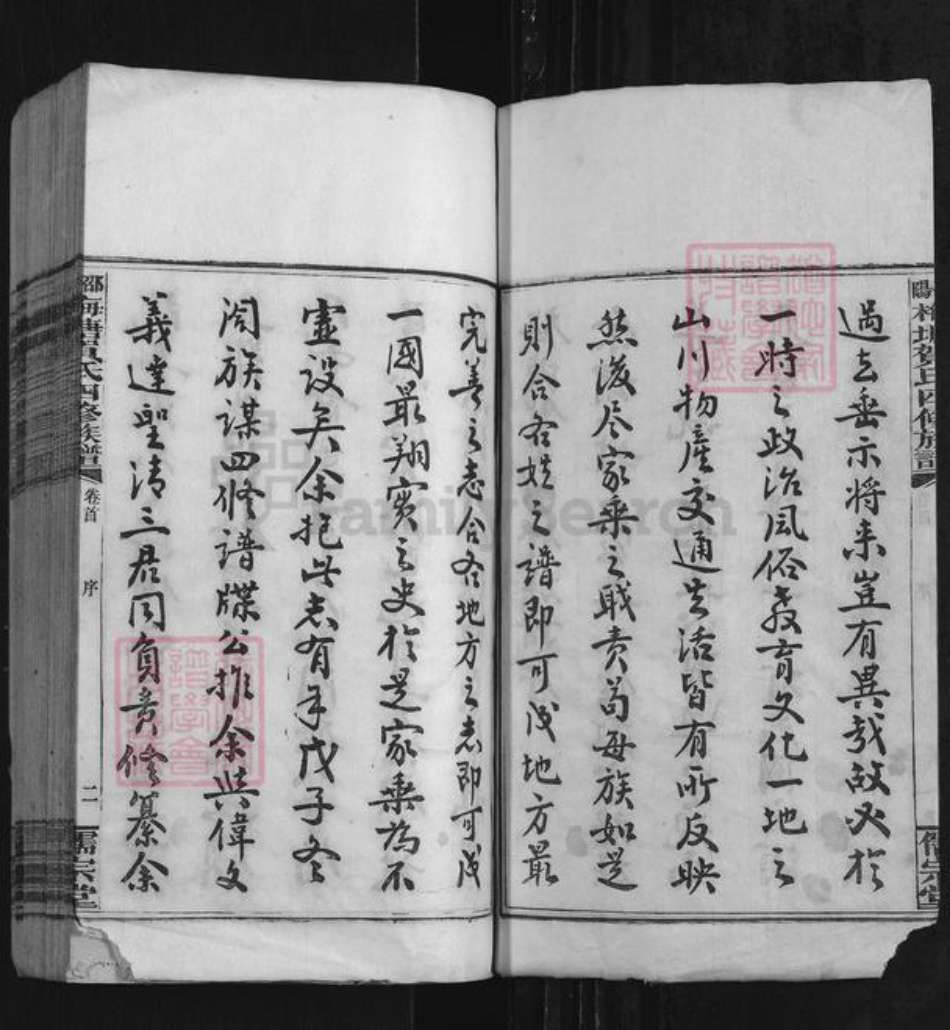 過去垂示將来豈有異哉故必於
一時之政治風俗教育文化一地之
山川物產交通生活皆有所反映
然後尽家乘之職责苟每族如是
則合各姓之譜即可成地方最
完善之志合各地方之志即可成
一國最翔實之史於是家乘為不
虛設矣余抱此志有年戊子冬
闔族謀四修譜牒公推余與偉文
義達聖清三君同負責修纂余
梅塘賀氏四修族譜
卷首
序
二
儒宗堂
FamilySearch